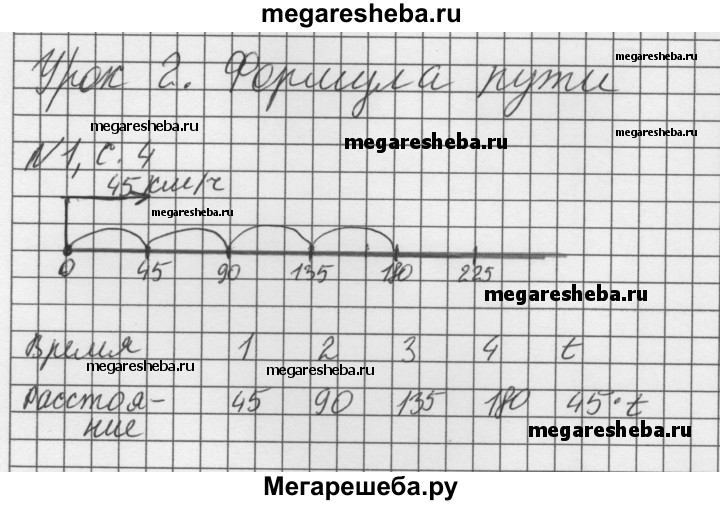 megaresheba.ru
Урок 2. Формула пути
megaresheba.ru
megaresheba.ru
megaresheba.ru
megaresheba.ru
N 1, с. 4
45 км/ч
megaresheba.ru
0 45 90 135 180 225
megaresheba.ru
Время 1 2 3 4 t
megaresheba.ru
megaresheba.ru
Расстоя- 45 90 135 180 45·t
ние
megaresheba.ru
Мегарешеба.ру